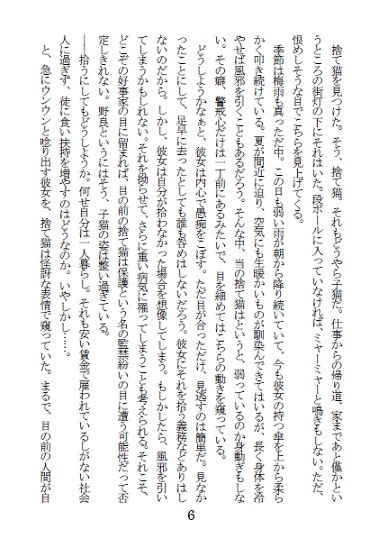 捨て猫を見つけた。そう、捨て猫。それもどうやら子猫だ。仕事からの帰り道、家まであと僅かとい
うところの街灯の下にそれはいた。段ボールに入っていなければ、ミャーミャーと鳴きもしない。ただ、
恨めしそうな目でこちらを見上げてくる。
　季節は梅雨も真っただ中。この日も弱い雨が朝から降り続いていて、今も彼女の持つ傘を上から柔ら
かく叩き続けている。夏が間近に迫り、空気にも生暖かいものが馴染んできてはいるが、長く身体を冷
やせば風邪を引くこともあるだろう。そんな中、当の捨て猫はというと、弱っているのか身動ぎもしな
い。その癖、警戒心だけは一丁前にあるみたいで、目を細めてはこちらの動きを窺っている。
　どうしようかなぁと、彼女は内心で愚痴をこぼす。ただ目が合っただけ、見逃すのは簡単だ。見なか
ったことにして、足早に去ったとしても誰も咎めはしないだろう。彼女にそれを拾う義務などありはし
ないのだから。しかし、彼女は自分が拾わなかった場合を想像してしまう。もしかしたら、風邪を引い
てしまうかもしれない。それを拗らせて、さらに重い病気に罹ってしまうことも考えられる。それこそ、
どこぞの好事家の目に留まれば、目の前の捨て猫は保護という名の監禁紛いの目に遭う可能性だって否
定しきれない。野良というにはそう、子猫の姿は整い過ぎている。
　――拾うにしてもどうしようか。何せ自分は一人暮らし。それも安い賃金で雇われているしがない社会
人に過ぎず、徒に食い扶持を増やすのはどうなのか。いやしかし……。
　と、急にウンウンと唸り出す彼女を、捨て猫は怪訝な表情で窺っていた。まるで、目の前の人間が自
6